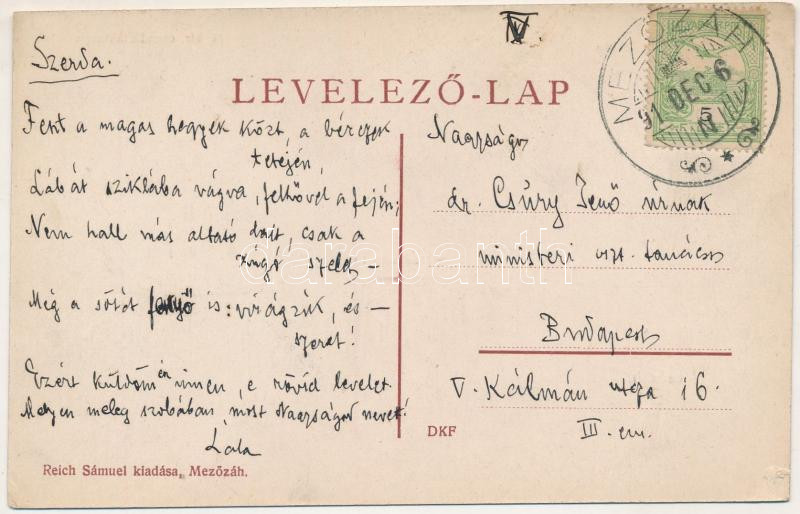 Szerda.
LEVELEZŐ-LAP
MEZŐZÁH
91 DEC 6
N
5
Fent a magas hegyek közt, a bérczek
tetején,
Lábát sziklába vágva, felhővel a fején;
Nem hall más altató dalt, csak a
zúgó szelet —
Még a sötét fenyő is: virágzik, és —
szeret!
Ezért küldöm én innen, e rövid levelet
Melyen meleg szobában most Nagyságod nevet!
Lala
Nagyságos
dr. Csűry Jenő úrnak
ministeri oszt. tanácsos
Budapest
V. Kálmán utcza 16.
III. em.
DKF
Reich Sámuel kiadása, Mezőzáh.
darabanth